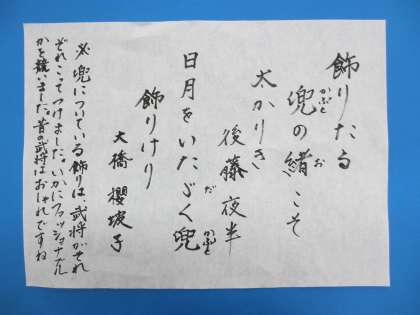 飾りたる
兜の緒こそ
かぶと
お
太かりき
後藤夜半
日月をいたゞく兜
だ
かぶと
飾りけり
大橋櫻坡子
※兜についている飾りは武将がそれ
ぞれこってつけました。いかにファッショナブル
かを競いました。昔の武将はおしゃれですね